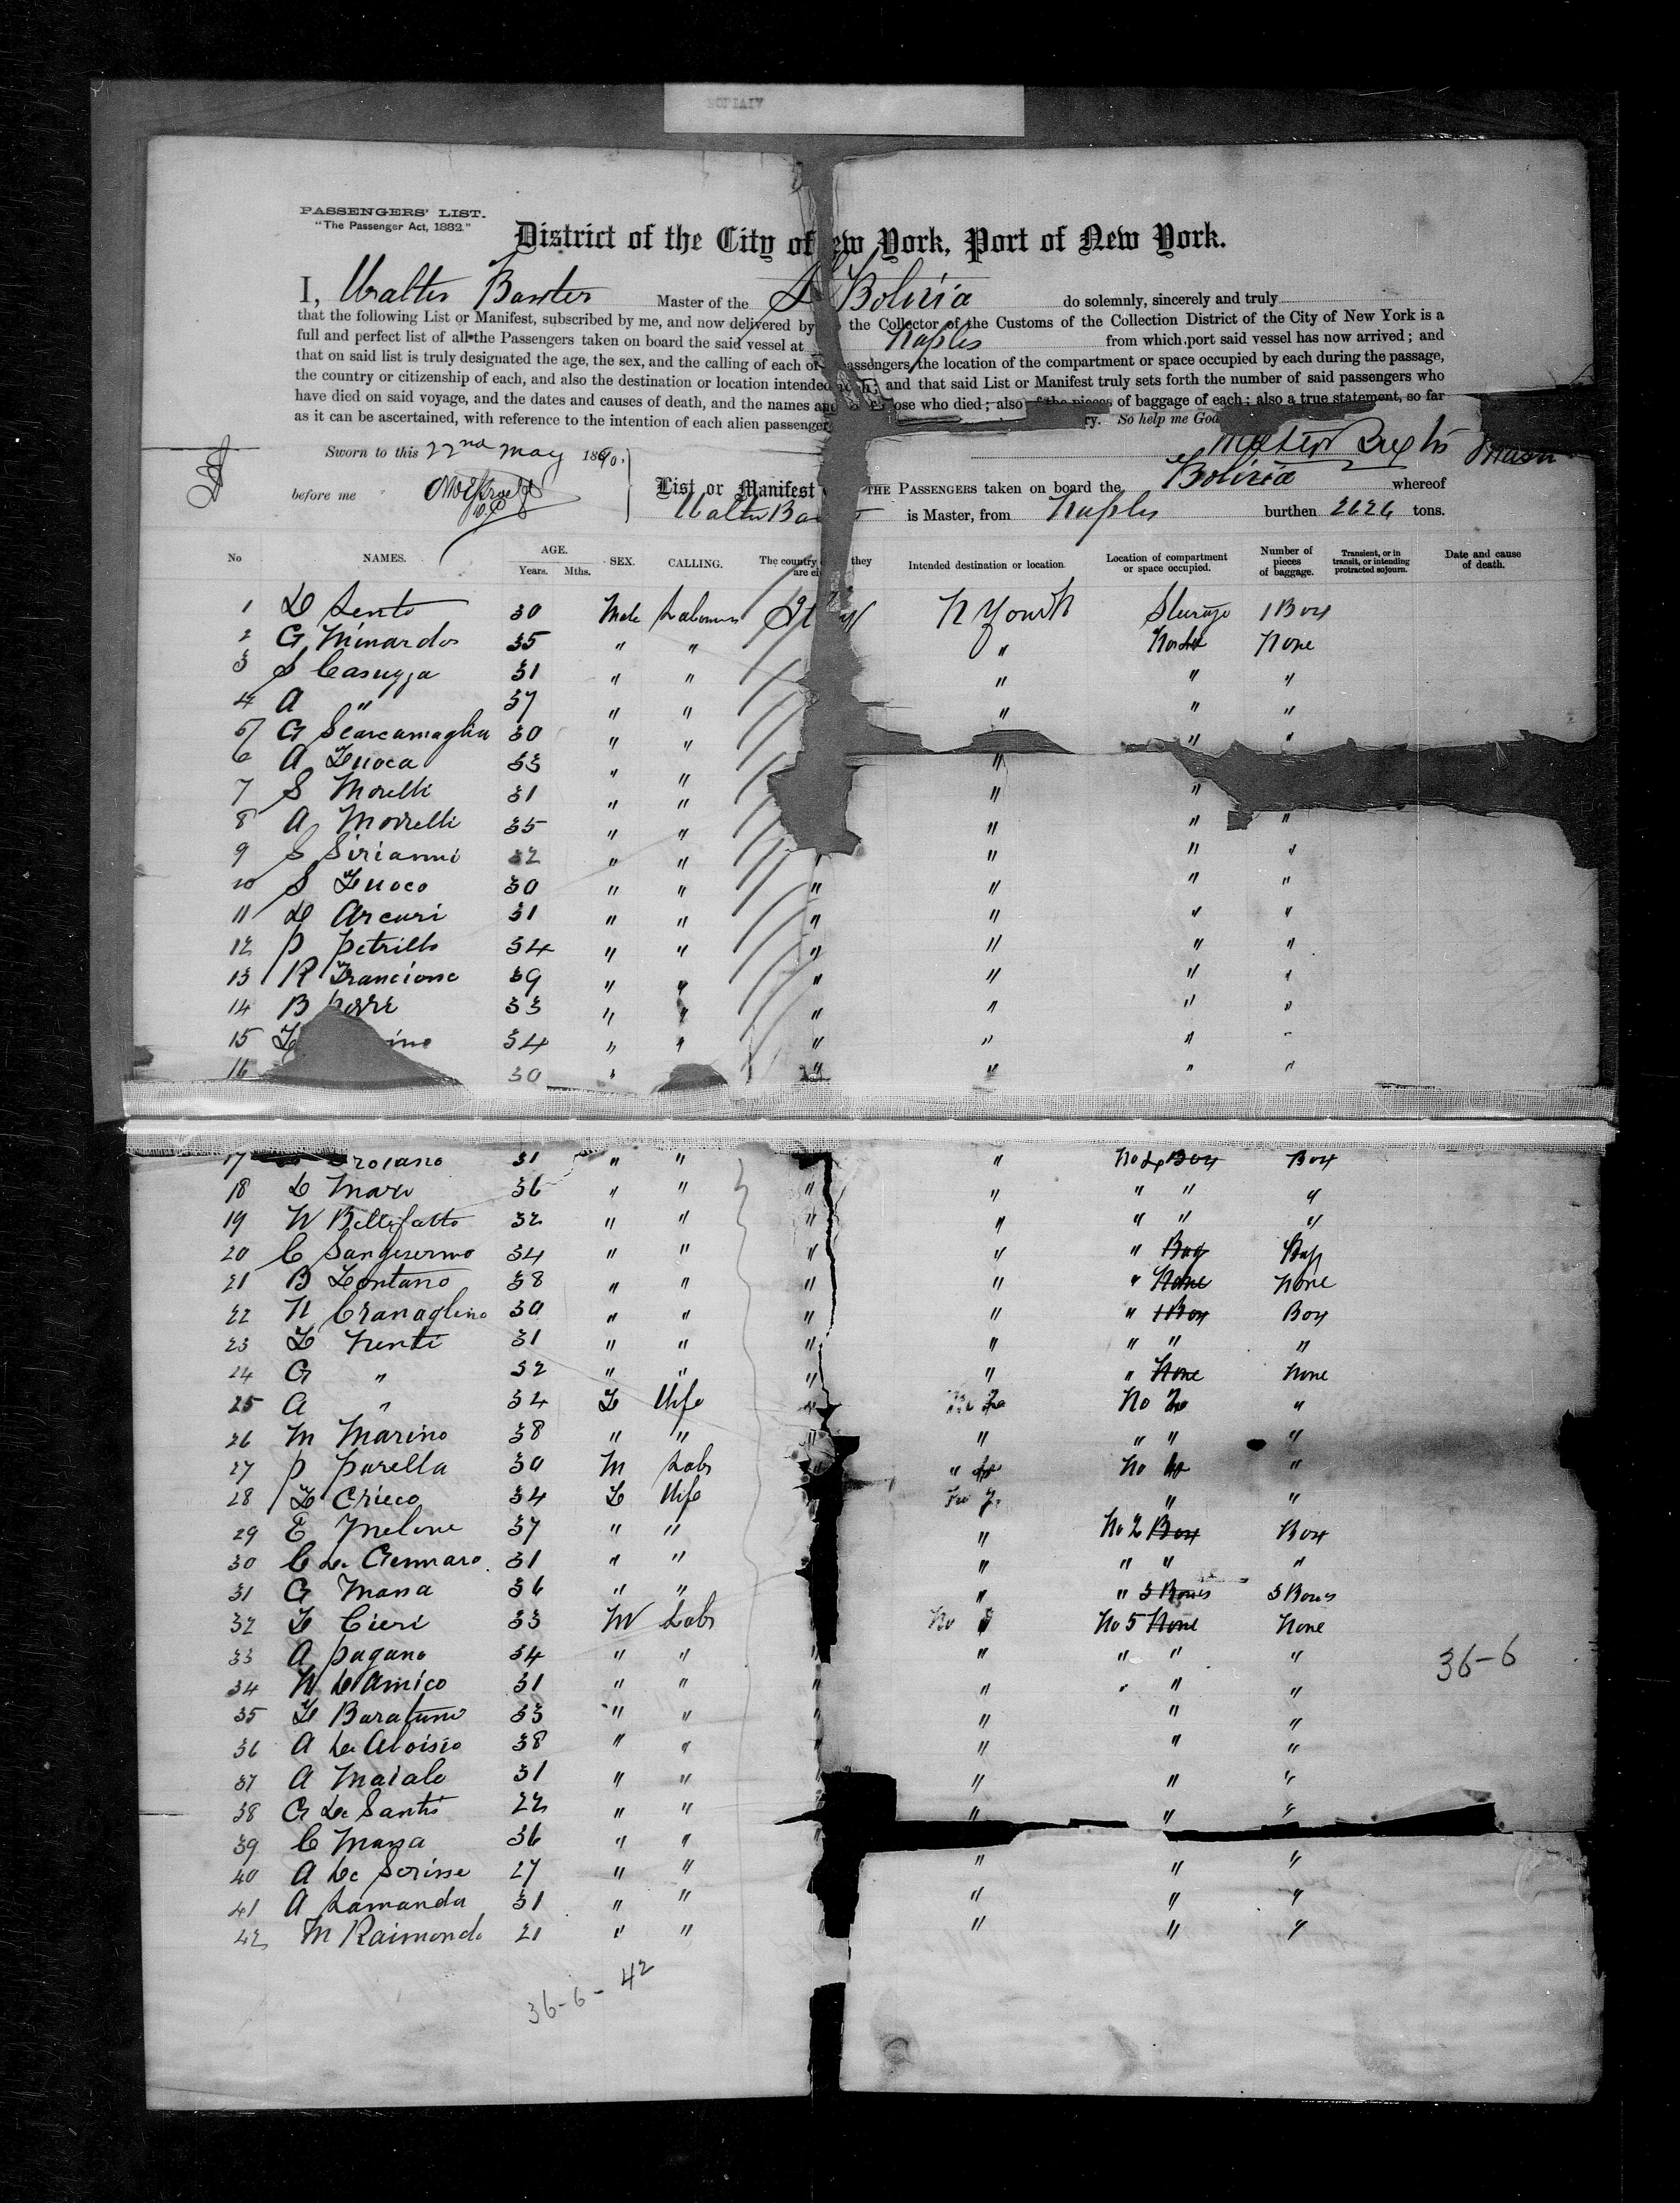 PASSENGERS' LIST.
"The Passenger Act, 1882."
District of the City of ew York, Port of New York.
I, Walter Baxter Master of the S Bolivia do solemnly, sincerely and truly
that the following List or Manifest, subscribed by me, and now delivered by the Collector of the Customs of the Collection District of the City of New York is a
full and perfect list of all the Passengers taken on board the said vessel at Naples from which port said vessel has now arrived; and
that on said list is truly designated the age, the sex, and the calling of each of passengers, the location of the compartment or space occupied by each during the passage,
the country or citizenship of each, and also the destination or location intended and that said List or Manifest truly sets forth the number of said passengers who
have died on said voyage, and the dates and causes of death, and the names and ose who died; also of the pieces of baggage of each; also a true statement, so far
as it can be ascertained, with reference to the intention of each alien passenger ry. So help me God
Sworn to this 22nd May 1890.
before me
List or Manifest THE PASSENGERS taken on board the Bolivia whereof
Walter Ba is Master, from Naples burthen 2626 tons.
No NAMES. AGE. Years. Mths. SEX. CALLING. The country they are ci Intended destination or location Location of compartment or space occupied. Number of pieces of baggage. Transient, or in transit, or intending protracted sojourn. Date and cause of death.
1 D Lento 30 Male Labourer It N York Steerage 1 Box
2 G Minardos 35 " " " None
3 S Casuzza 31 " " " " "
4 A " 37 " " " " "
5 G Scarcamaglia 30 " " " "
6 A Fuoca 33 " " "
7 S Morelli 31 " " " "
8 A Morelli 35 " " " " "
9 S Sirianni 32 " " " " " "
10 S Fuoco 30 " " " " " "
11 D Arcuri 31 " " " " " "
12 P Petrillo 34 " " " " " "
13 R Francione 39 " " " " " "
14 B 33 " " " " " "
15 F ino 34 " " " " " "
16 30 " " " " "
17 roiano 31 " " " " No 2 Box Box
18 D Mari 36 " " " " " " "
19 N Bellifatto 32 " " " " " " "
20 C Sangisermo 34 " " " " " Bag Bag
21 B Fontano 38 " " " " " None None
22 N Cranaglino 30 " " " " " 1 Box Box
23 F Nenti 31 " " " " " " "
24 G " 32 " " " " " None None
25 A " 34 F Wife " No 2 "
26 M Marino 38 " " " " " " "
27 P Parella 30 M Labr " " No "
28 F Crieco 34 F Wife " "
29 E Melone 37 " " " No 2 Box Box
30 C De Gennaro 31 " " " " " "
31 G Massa 36 " " " " 3 Boxes 3 Boxes
32 F Cieri 33 M Labr No No 5 None None
33 A Pagano 34 " " " " " " 36-6
34 N D'Amico 31 " " " " " "
35 F Baratuno 33 " " " " "
36 A De Aloisio 38 " " " " "
37 A Maialo 31 " " " " "
38 G De Santis 22 " " " " "
39 C Massa 36 " "
40 A De Scrisse 27 " " " " "
41 A Lamanda 31 " " " " "
42 M Raimondo 21 " " " " "
36-6-42